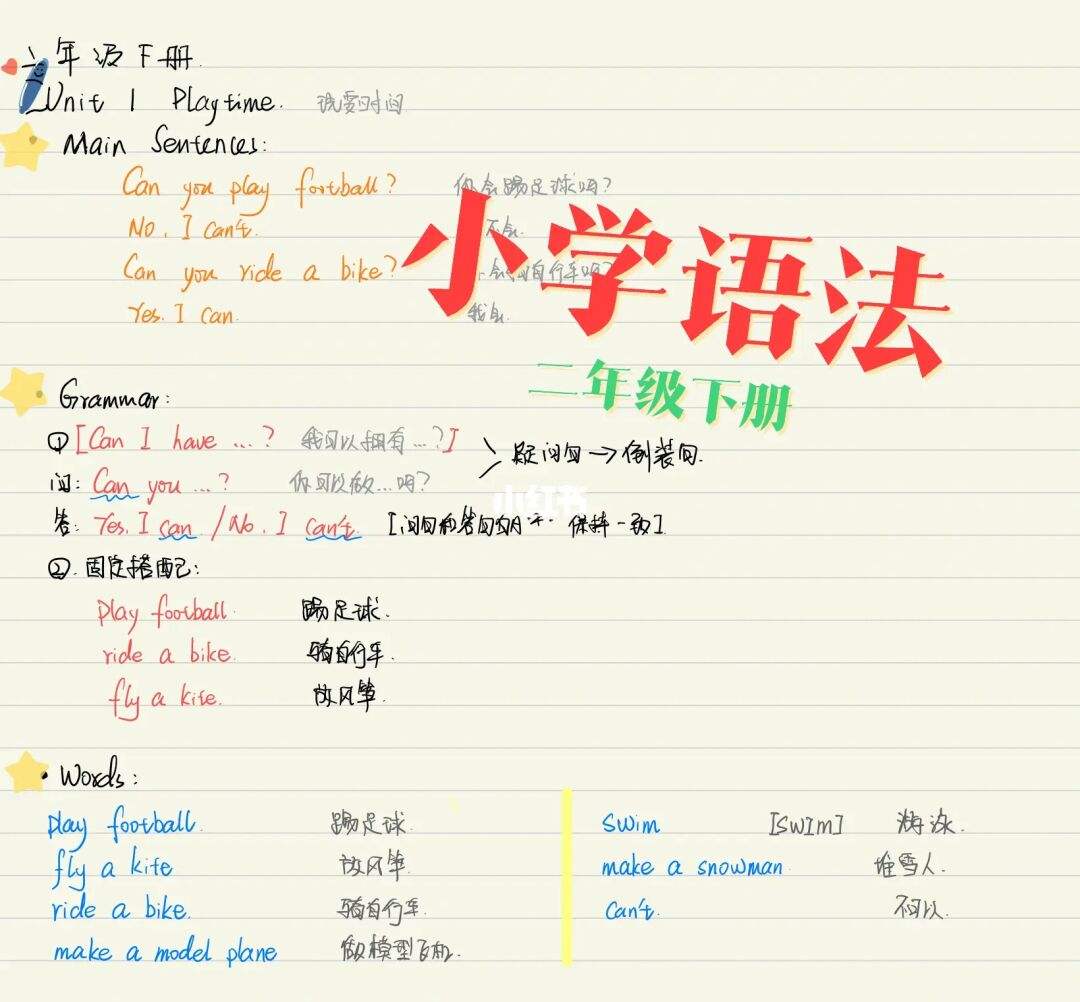 二年级下册.
Unit 1 Playtime. 玩耍时间
Main Sentences:
Can you play football? 你会踢足球吗?
No, I can't. 不会.
Can you ride a bike? 会骑自行车吗?
Yes. I can. 我会.
小学语法
二年级下册
Grammar:
① [Can I have ...? 我可以拥有...?]
疑问句→倒装句.
问: Can you ...? 你可以做...吗?
小红书
答: Yes, I can. / No, I can't. [问句和答句 保持一致]
②. 固定搭配:
play football. 踢足球.
ride a bike. 骑自行车.
fly a kite. 放风筝.
Words:
play football. 踢足球.
fly a kite 放风筝.
ride a bike. 骑自行车.
make a model plane 做模型飞机.
swim [swIm] 游泳.
make a snowman 堆雪人.
can't. 不可以.